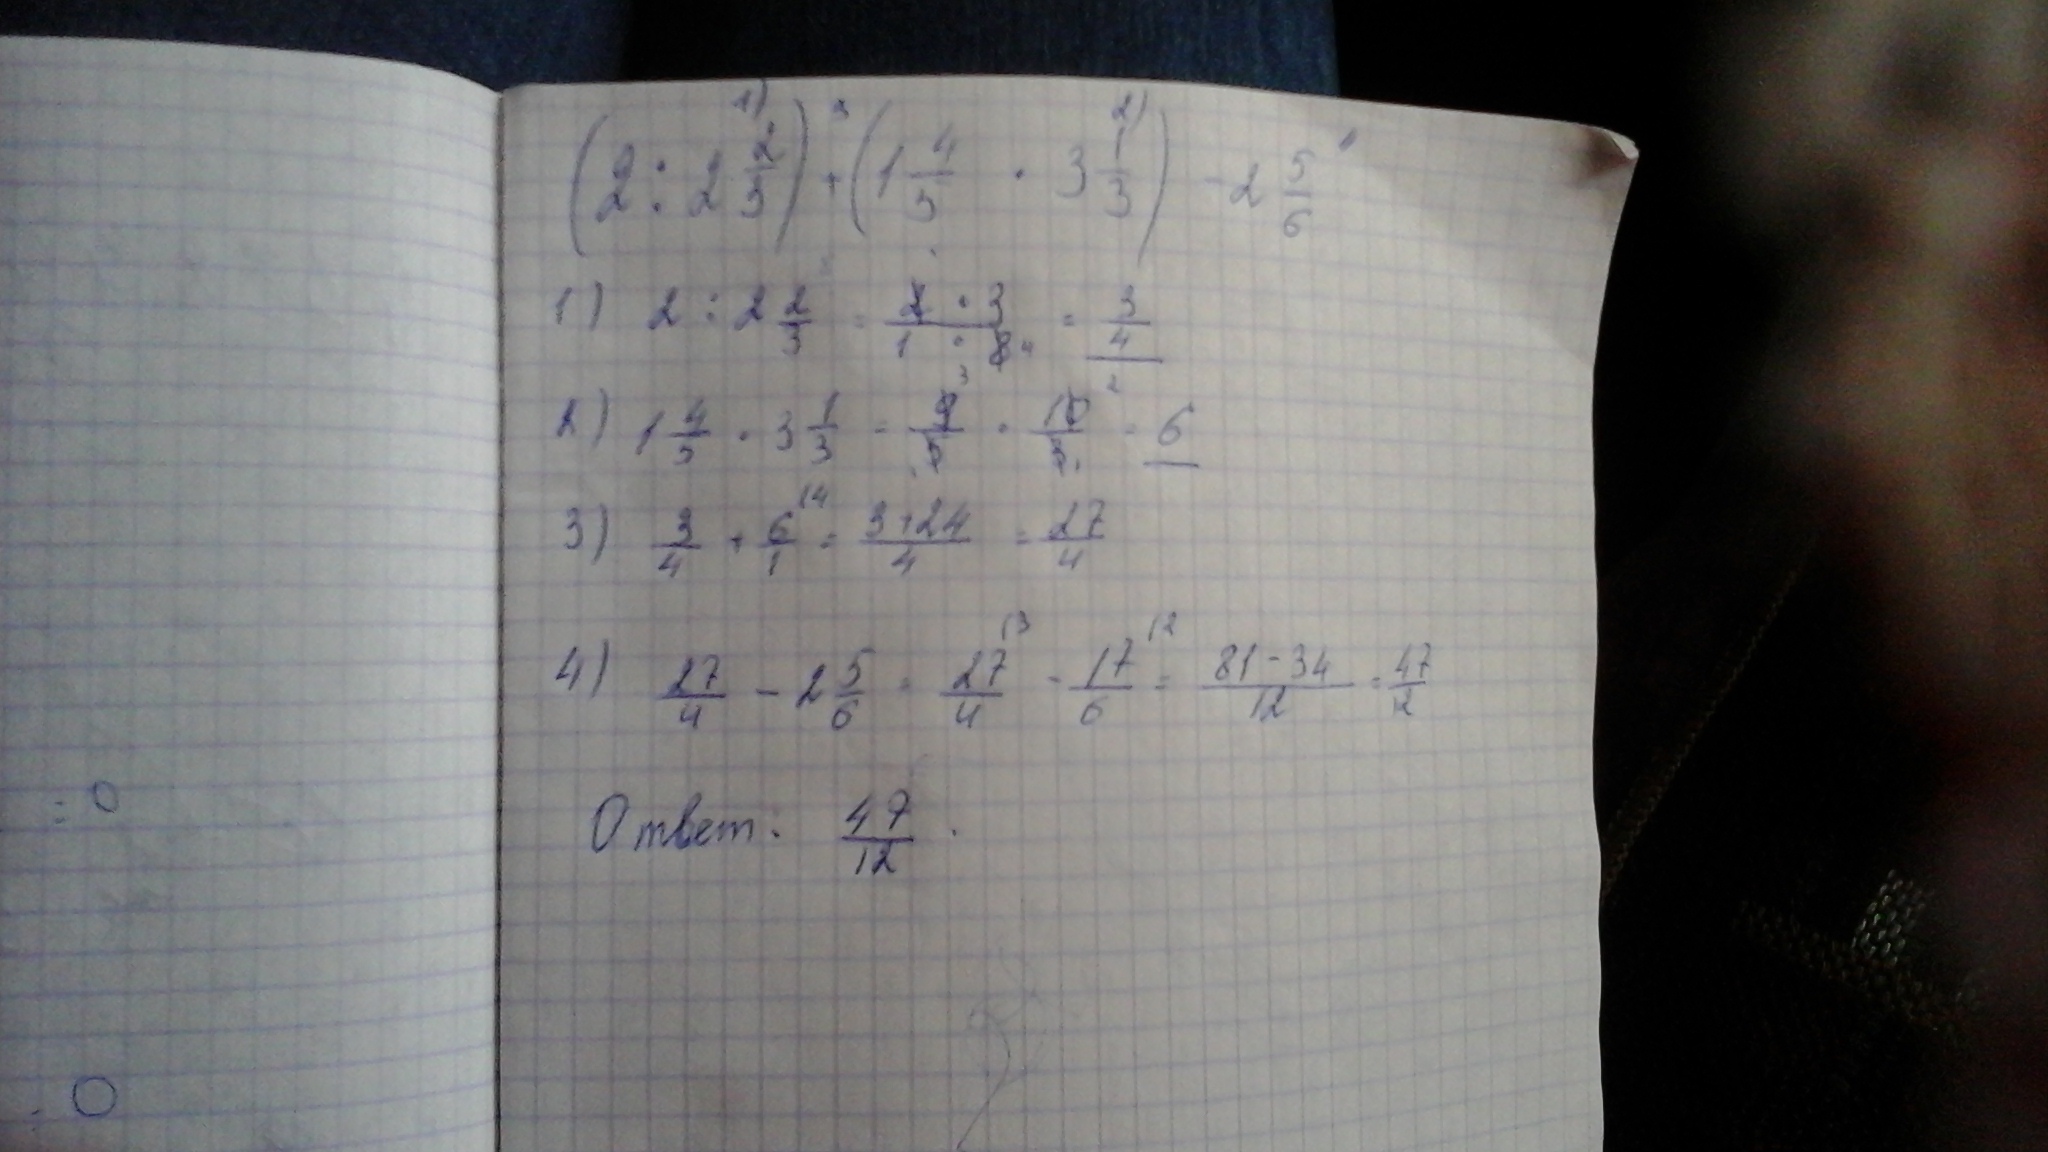 (2 : 2 2/3) + (1 4/5 · 3 1/3) - 2 5/6
1) 2 : 2 2/3 = 2 · 3 / 1 · 8 4 = 3/4
2) 1 4/5 · 3 1/3 = 9 3 / 5 1 · 10 2 / 3 1 = 6
3) 3/4 + 6/1 |4 = 3+24/4 = 27/4
4) 27/4 - 2 5/6 = 27/4 |3 - 17/6 |2 = 81-34/12 = 47/12
Ответ: 47/12 .
= 0
. 0